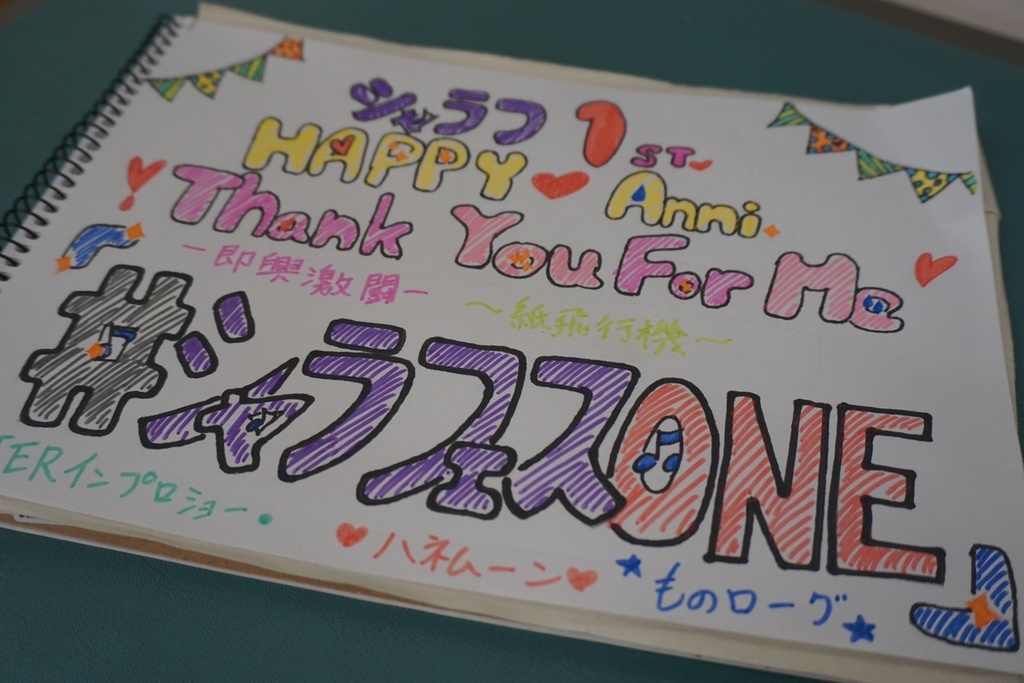 シャラフ 1ST
HAPPY Anni.
Thank You For Me
ー即興激闘ー
～紙飛行機～
「#シャラフェスONE」
ERインプロショー.
ハネムーン
ものローグ